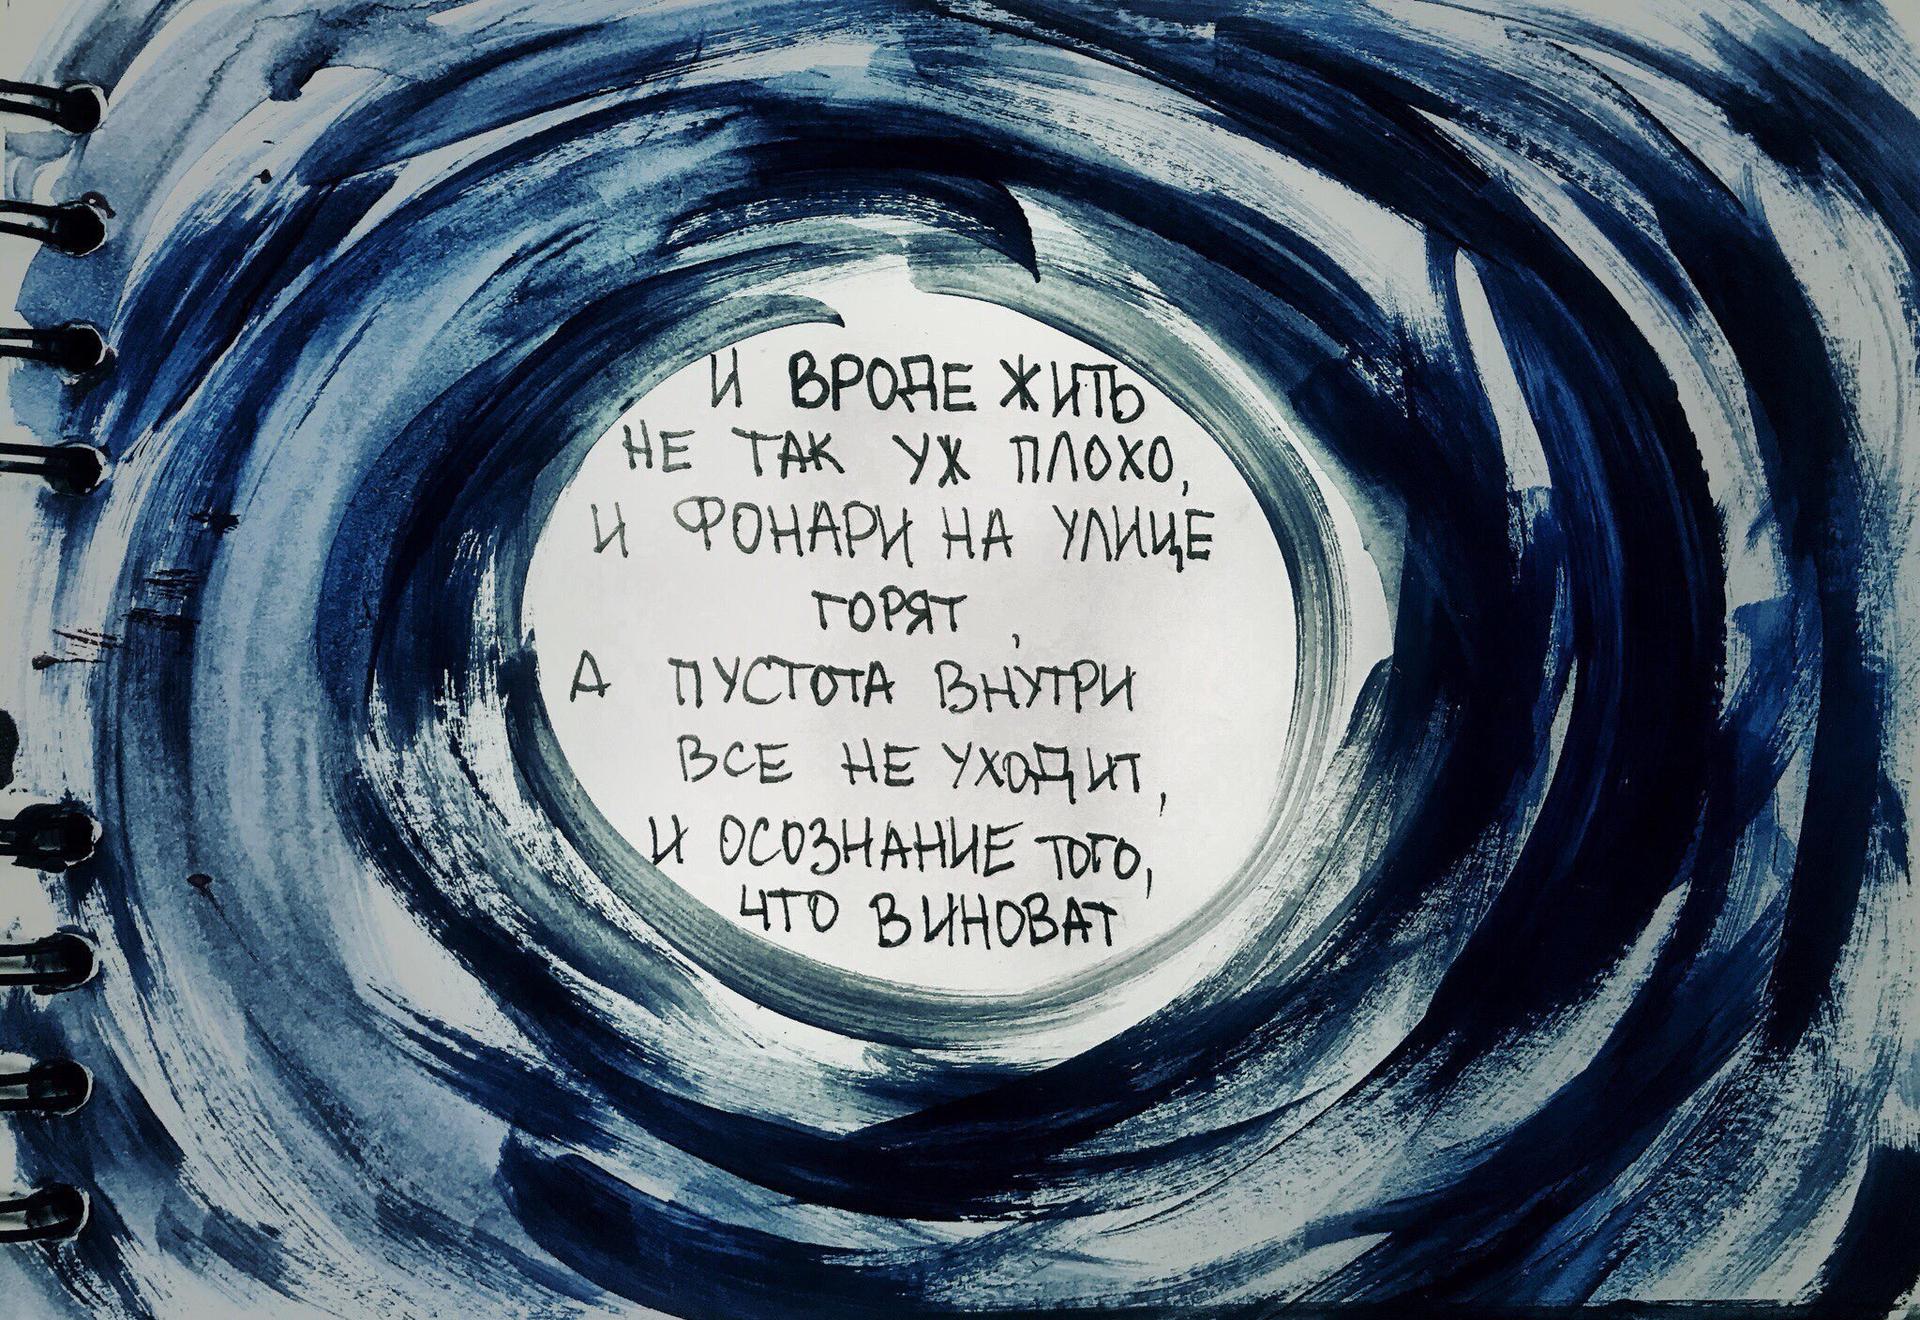 И ВРОДЕ ЖИТЬ
НЕ ТАК УЖ ПЛОХО,
И ФОНАРИ НА УЛИЦЕ
ГОРЯТ,
А ПУСТОТА ВНУТРИ
ВСЕ НЕ УХОДИТ,
И ОСОЗНАНИЕ ТОГО,
ЧТО ВИНОВАТ